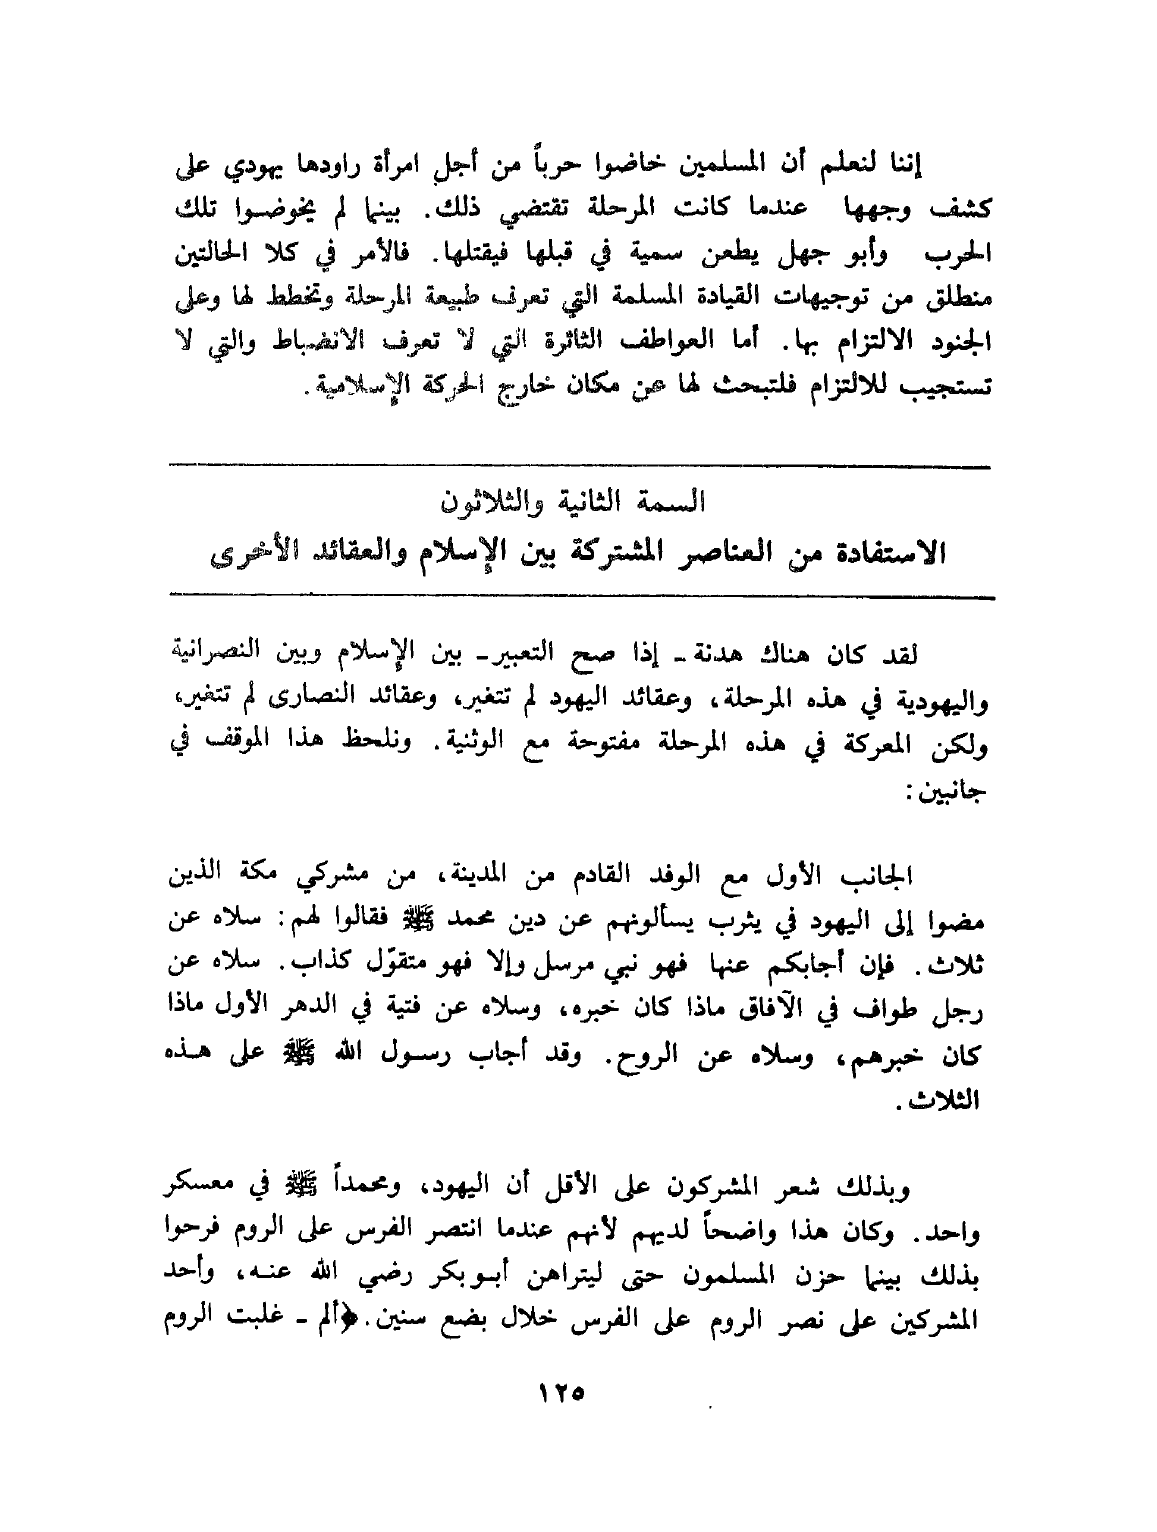 إننا لنعلم أن المسلمين خاضوا حرباً من أجل امرأة راودها يهودي على
كشف وجهها عندما كانت المرحلة تقتضي ذلك. بينما لم يخوضوا تلك
الحرب وأبو جهل يطعن سمية في قبلها فيقتلها. فالأمر في كلا الحالتين
منطلق من توجيهات القيادة المسلمة التي تعرف طبيعة المرحلة وتخطط لها وعلى
الجنود الالتزام بها. أما العواطف الثائرة التي لا تعرف الانضباط والتي لا
تستجيب للالتزام فلتبحث لها عن مكان خارج الحركة الإسلامية.
السمة الثانية والثلاثون
الاستفادة من العناصر المشتركة بين الإسلام والعقائد الأخرى
لقد كان هناك هدنة - إذا صح التعبير - بين الإسلام وبين النصرانية
واليهودية في هذه المرحلة، وعقائد اليهود لم تتغير، وعقائد النصارى لم تتغير،
ولكن المعركة في هذه المرحلة مفتوحة مع الوثنية. ونلحظ هذا الموقف في
جانبين:
الجانب الأول مع الوفد القادم من المدينة، من مشركي مكة الذين
مضوا إلى اليهود في يثرب يسألونهم عن دين محمد ﷺ فقالوا لهم: سلاه عن
ثلاث. فإن أجابكم عنها فهو نبي مرسل وإلا فهو متقوّل كذاب. سلاه عن
رجل طواف في الآفاق ماذا كان خبره، وسلاه عن فتية في الدهر الأول ماذا
كان خبرهم، وسلاه عن الروح. وقد أجاب رسول الله ﷺ على هذه
الثلاث.
وبذلك شعر المشركون على الأقل أن اليهود، ومحمداً ﷺ في معسكر
واحد. وكان هذا واضحاً لديهم لأنهم عندما انتصر الفرس على الروم فرحوا
بذلك بينما حزن المسلمون حتى ليتراهن أبو بكر رضي الله عنه، وأحد
المشركين على نصر الروم على الفرس خلال بضع سنين. ﴿ألم - غلبت الروم
١٢٥